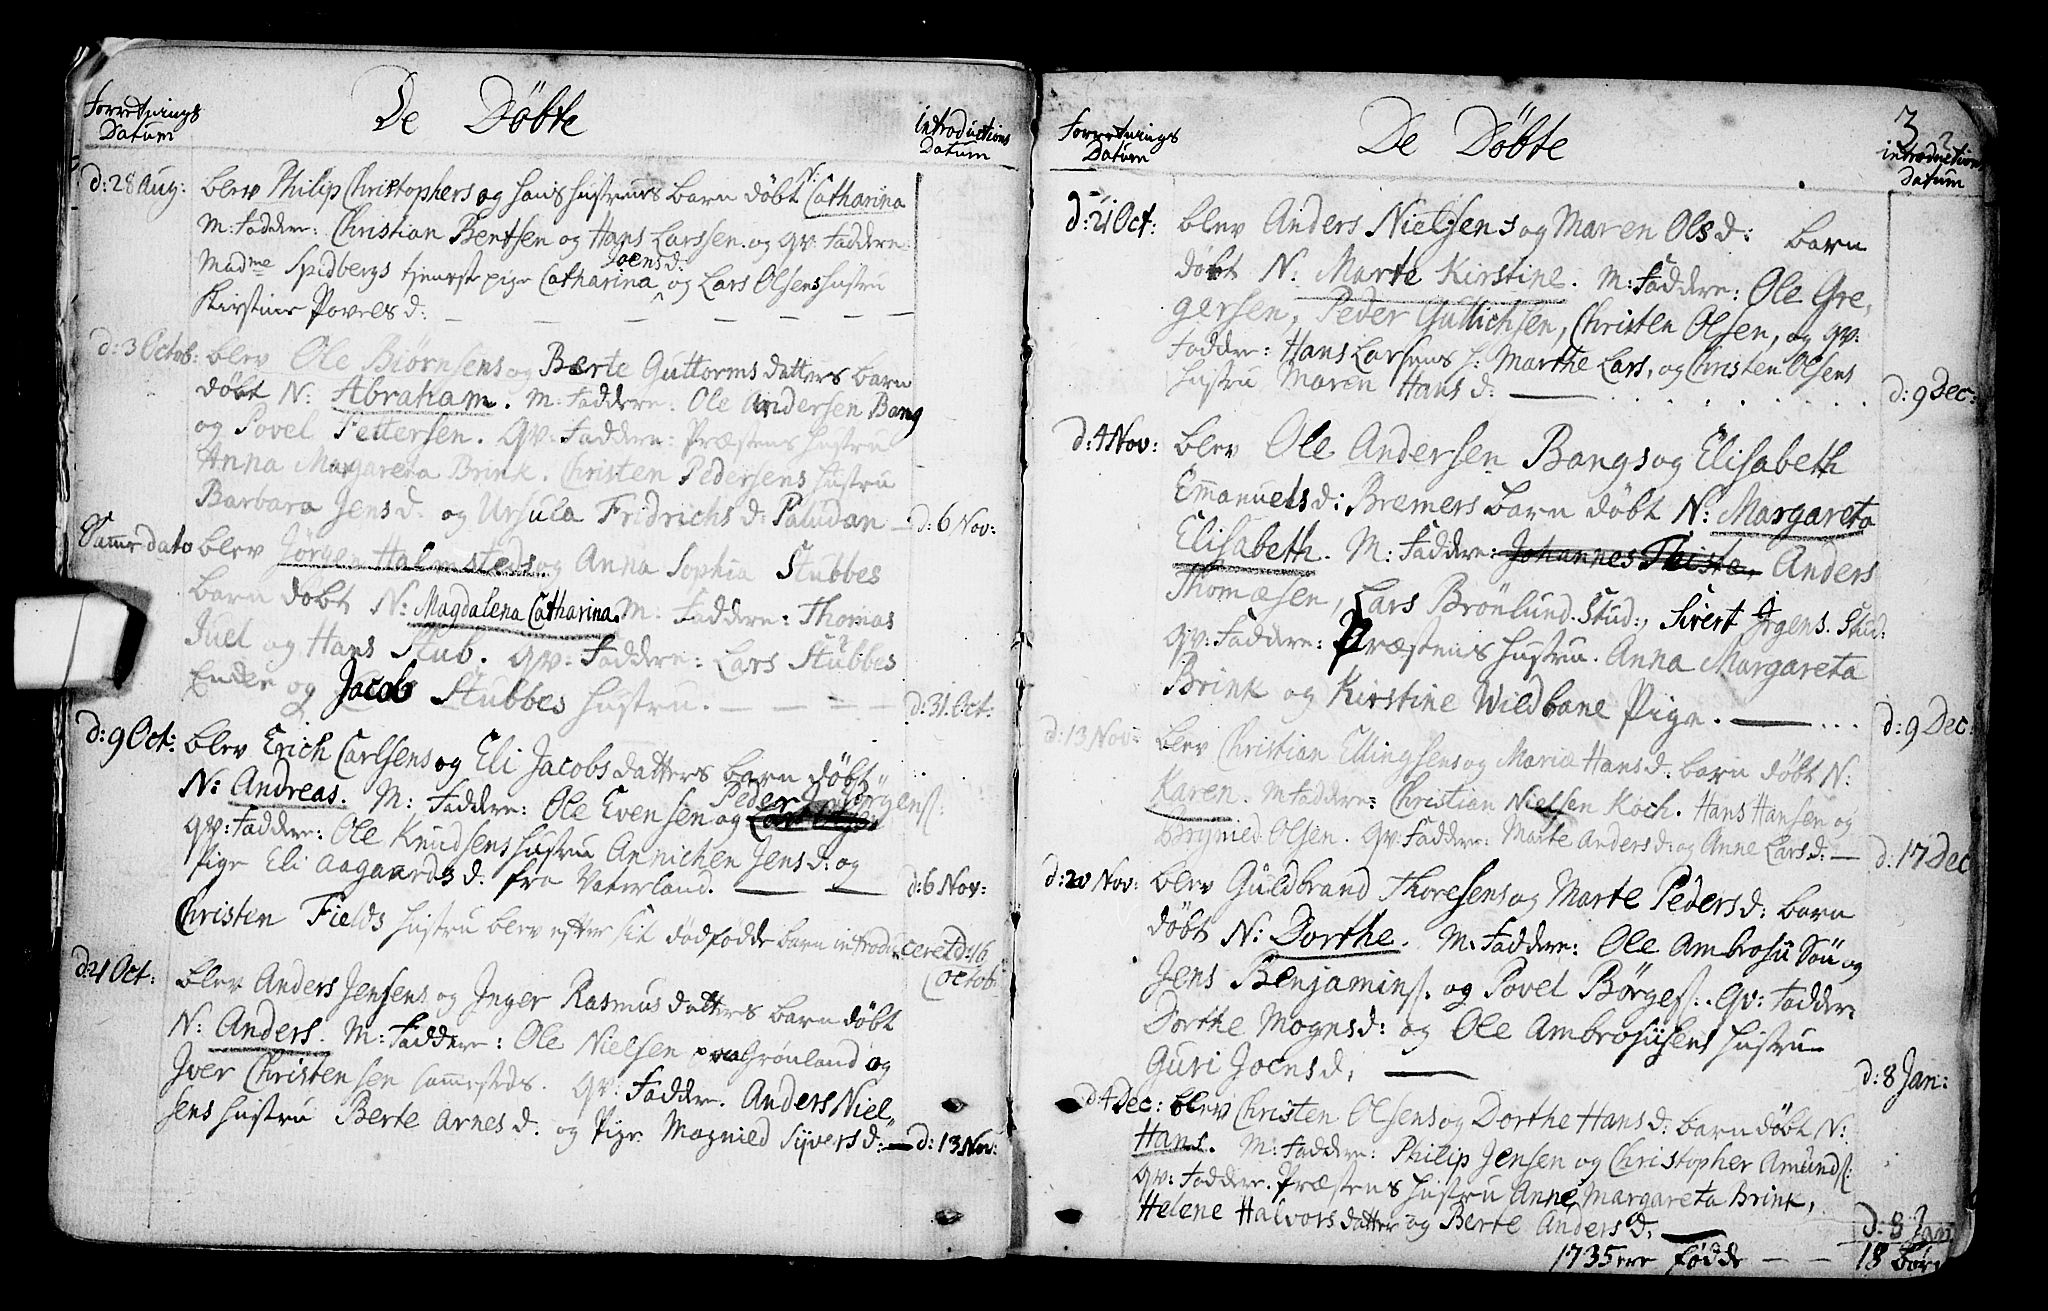 Forretnings
Datum
De Döbte
introductions
Datum
d: 28 Aug: blev Philip Christophers og hans hustrues barn döbt N: Catharina
M: Faddere: Christian Bentsen og Hans Larssen. og qv: Faddere
Madme Spidbergs tjeneste pige Catharina Joensd: og Lars Olsens hustru
Kirstine Povelsd: — — — — — —
d: 3 Octob: blev Ole Biörnsens og Berte Guttorms datters barn
döbt N: Abraham. M: Faddere: Ole Andersen Bang
og Povel Pettersen. Qv: Faddere: Præstens hustru
Anna Margareta Brink. Christen Pedersens hustru
Barbara Jensd. og Ursula Fridrichsd: Paludan — d: 6 Nov:
Samme dato blev Jörgen Halmsteds og Anna Sophia Stubbes
barn döbt N: Magdalena Catharina. M: Faddere: Thomas
Juel og Hans Stub. qv: Faddere: Lars Stubbes
Enke og Jacob Stubbes hustru. — — — — d: 31. Oct:
d: 9 Oct: blev Erich Carlsens og Eli Jacobs datters barn döbt
N: Andreas. M: Faddere: Ole Evensen og Peder Jörgens:
qv: Faddere: Ole Knudsens hustru Annichen Jensd: og
Pige Eli Aagaardsd: fra Vaterland. — — d: 6 Nov:
Christen Fields hustru blev efter sit dödfödde barn introduceret d: 16
Octob:
d: 21 Oct: blev Anders Jensens og Inger Rasmus datters barn döbt
N: Anders. M: Faddere: Ole Nielsen paa Grönland og
Iver Christensen sammesteds. qv: Faddere. Anders Niel
sens hustru Berte Arnesd. og Pige Magnied Syversd: — d: 13 Nov:
Forretnings
Datum
De Döbte
3
introduction
Datum
d: 21 Oct: blev Anders Nielsens og Maren Olsd: barn
döbt N. Marte Kirstine. M: Faddere: Ole Gre,
gersen, Peder Gullichsen, Christen Olsen, og qv:
Faddre: Hans Larsens h: Marthe Lars, og Christen Olsens
hustru Maren Hansd: — d: 9 Dec:
d: 4 Nov: blev Ole Andersen Bangs og Elisabeth
Emanuelsd: Bremers barn döbt N: Margareta
Elisabeth. M: Faddere: Johannes Thiste, Anders
Thomæsen, Lars Brönlund. Stud:, Sivert Jrgens. Stud:
qv: Faddere: Præstens hustru. Anna Margareta
Brink og Kirstine Wildbane Pige. — d: 9 Dec:
d: 13 Nov: blev Christian Ellingsens og Maria Hansd: barn döbt N:
Karen. M Faddere: Christian Nielsen Koch. Hans Hansen og
Olsen. Qv: Faddere: Marte Andersd: og Anne Larsd: — d: 17 Dec
d: 20 Nov: blev Guldbrand Thoresens og Marte Pedersd: barn
döbt N: Dorthe. M: Faddere: Ole Ambrosii Sön og
Jens Benjamins. og Povel Börges. Qv: Faddere
Dorthe Mognsd: og Ole Ambrosiisens hustru
Guri Joensd, — d: 8 Jan:
d 4 Dec: blev Christen Olsens og Dorthe Hansd: barn döbt N:
Hans. M: Faddere: Philip Jensen og Christopher Amunds:
qv: Faddere. Præstens hustru Anne Margareta Brink,
Helene Halvors datter og Berte Andersd, — d: 8 Jan
1735 ere födde — — 18 Börn